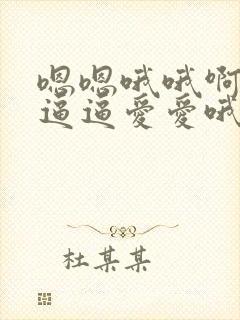 嗯嗯哦哦啊
逼逼爱爱哦
杜某某